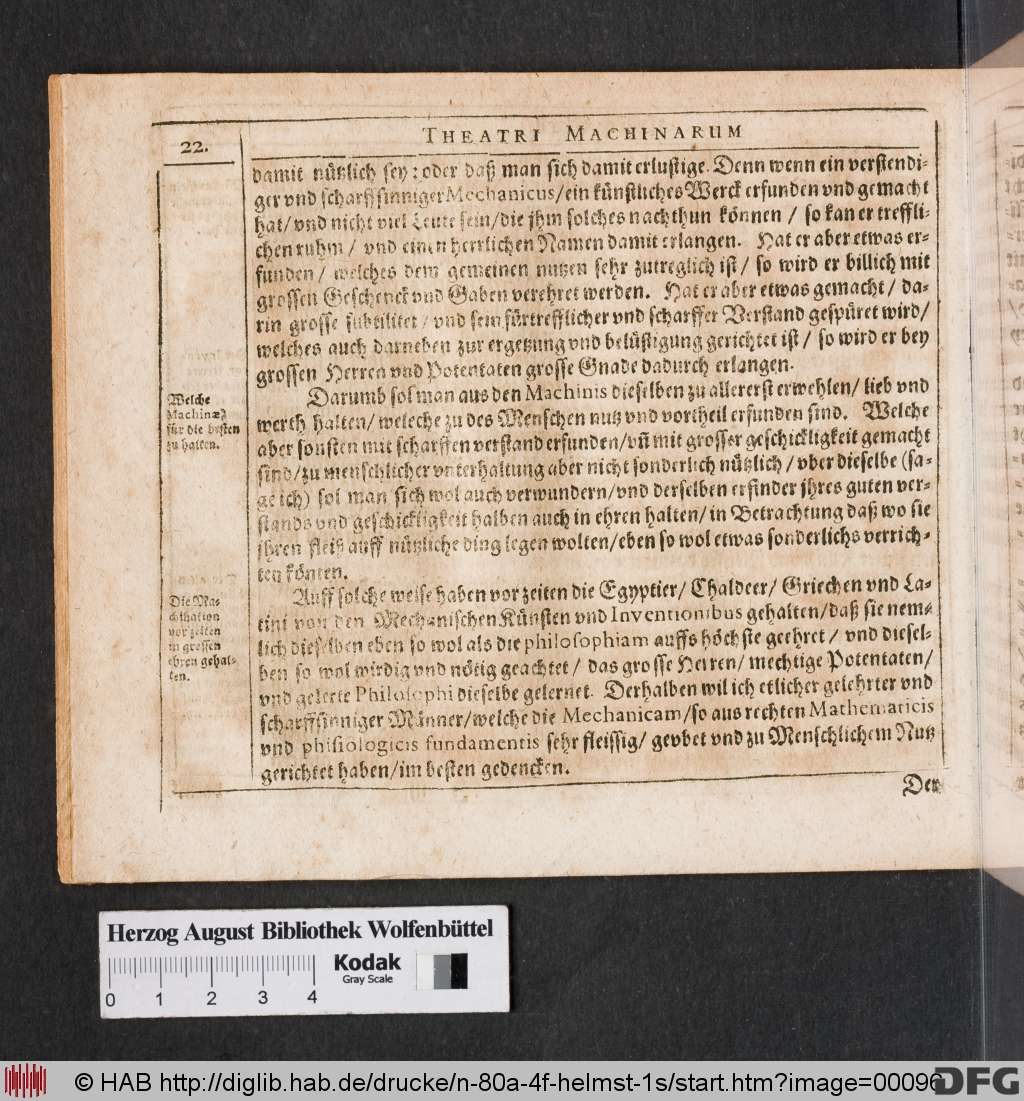 22.
THEATRI MACHINARUM
damit nützlich sey: oder daß man sich damit erlustige. Denn wenn ein verstendi-
ger vnd scharffsinniger Mechanicus/ ein künstliches Werck erfunden vnd gemacht
hat/ vnd nicht viel Leute sein/ die jhm solches nachthun können / so kan er treffli-
chen ruhm / vnd einen herrlichen Namen damit erlangen. Hat er aber etwas er-
funden / welches dem gemeinen nutzen sehr zutreglich ist / so wird er billich mit
grossen Geschenck vnd Gaben verehret werden. Hat er aber etwas gemacht / da-
rin grosse subtilitet / vnd sein fürtrefflicher vnd scharffer Verstand gespüret wird/
welches auch darneben zur ergetzung vnd belüstigung gerichtet ist / so wird er bey
grossen Herren vnd Potentaten grosse Gnade dadurch erlangen.
Welche
Machinæ
für die besten
zu halten.
Darumb sol man aus den Machinis dieselben zu allererst erwehlen/ lieb vnd
werth halten/ weleche zu des Menschen nutz vnd vortheil erfunden sind. Welche
aber sonsten mit scharffen verstand erfunden/ vñ mit grosser geschickligkeit gemacht
sind/ zu menschlicher vnterhaltung aber nicht sonderlich nützlich / vber dieselbe (sa-
ge ich) sol man sich wol auch verwundern/ vnd derselben erfinder jhres guten ver-
stands vnd geschickligkeit halben auch in ehren halten/ in Betrachtung daß wo sie
jhren fleiß auff nützliche ding legen wolten/ eben so wol etwas sonderlichs verrich-
ten könten.
Die Ma-
chination
vor zeiten
in grossen
ehren gehal-
ten.
Auff solche weise haben vor zeiten die Egyptier/ Chaldeer/ Griechen vnd La-
tini von den Mechanischen Künsten vnd Inventionibus gehalten/ daß sie nem-
lich dieselben eben so wol als die philosophiam auffs höchste geehret / vnd diesel-
ben so wol wirdig vnd nötig geachtet / das grosse Herren/ mechtige Potentaten/
vnd gelerte Philosophi dieselbe gelernet. Derhalben wil ich etlicher gelehrter vnd
scharffsinniger Männer/ welche die Mechanicam/ so aus rechten Mathematicis
vnd phisiologicis fundamentis sehr fleissig/ gevbet vnd zu Menschlichem Nutz
gerichtet haben/ im besten gedencken.
Der
Herzog August Bibliothek Wolfenbüttel
Kodak
Gray Scale
0 1 2 3 4
© HAB http://diglib.hab.de/drucke/n-80a-4f-helmst-1s/start.htm?image=00096
DFG